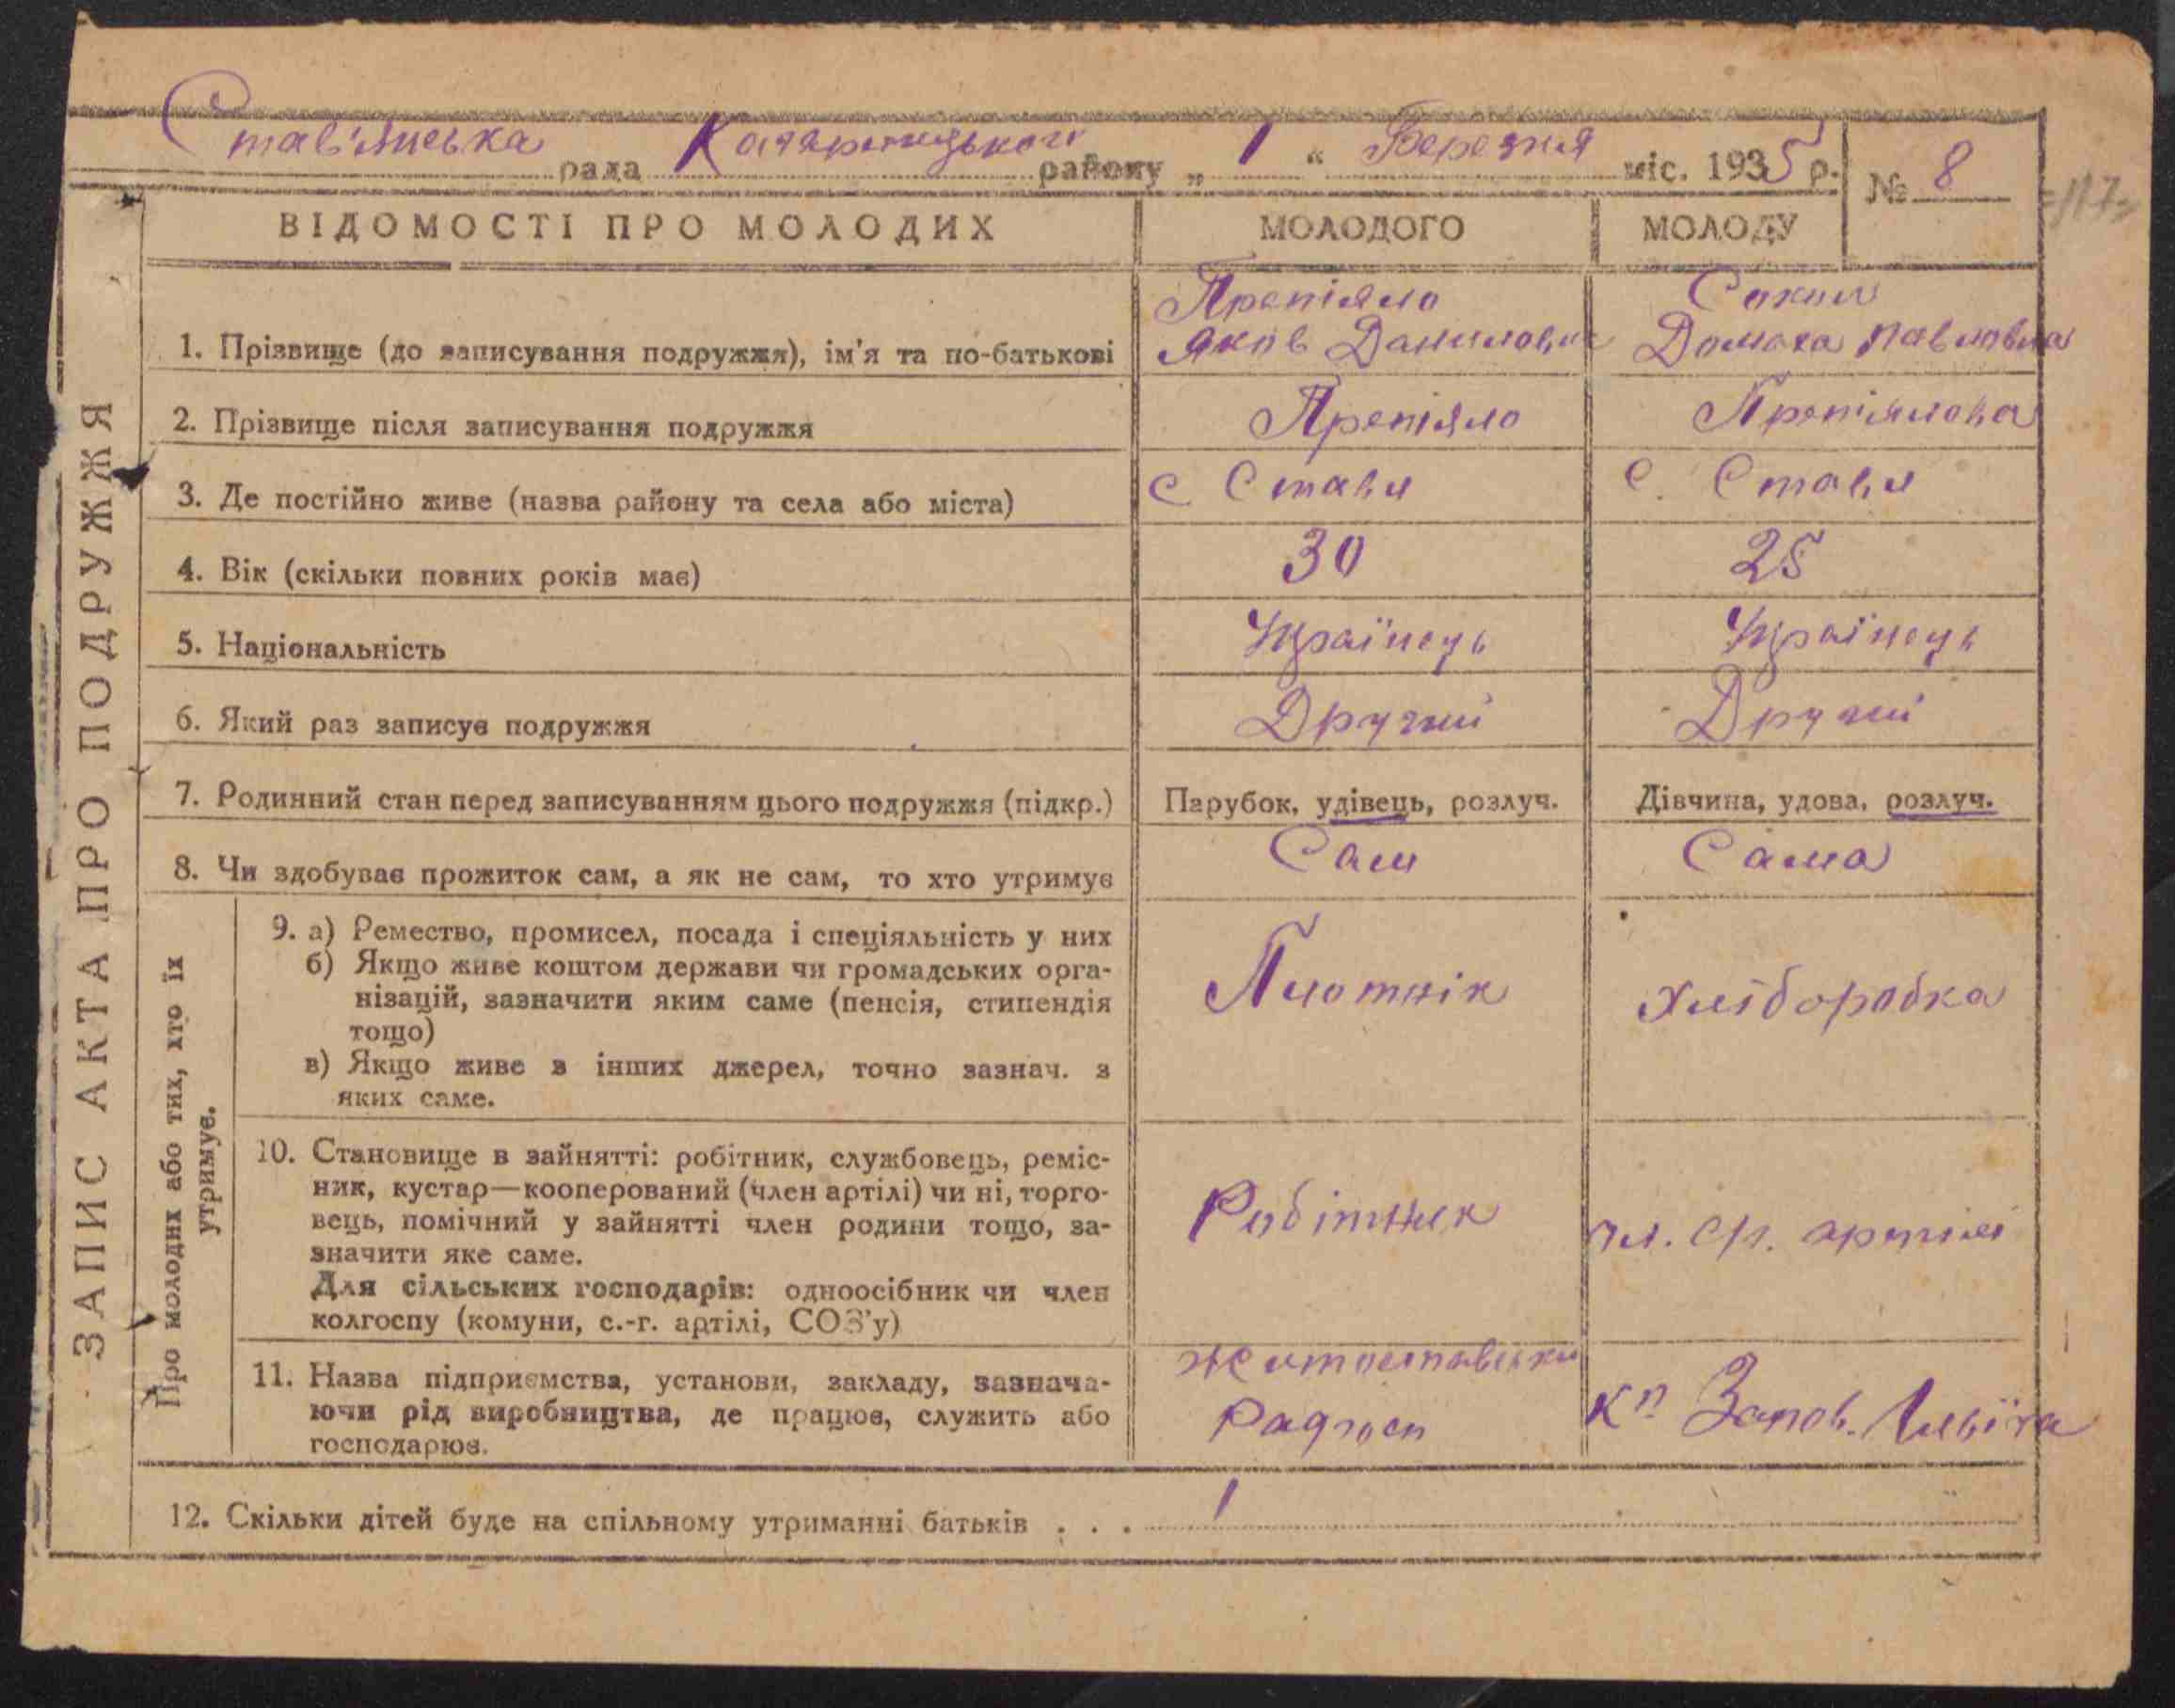 Став'янська рада Кагарлицького району „ 1 “ Березня міс. 1935 р. № 8
ЗАПИС АКТА ПРО ПОДРУЖЖЯ
ВІДОМОСТІ ПРО МОЛОДИХ МОЛОДОГО МОЛОДУ
1. Прізвище (до записування подружжя), ім'я та по-батькові Притіяло Яков Данилович Сокил Домаха Павловна
2. Прізвище після записування подружжя
3. Де постійно живе (назва району та села або міста) с Стави с. Стави
4. Вік (скільки повних років має) 30 25
5. Національність Українець Українець
6. Який раз записує подружжя Другий Другий
7. Родинний стан перед записуванням цього подружжя (підкр.) Парубок, удівець, розлуч. Дівчина, удова, розлуч.
8. Чи здобуває прожиток сам, а як не сам, то хто утримує Сам Сама
Про молодих або тих, хто їх
утримує.
9. а) Ремество, промисел, посада і спеціяльність у них
б) Якщо живе коштом держави чи громадських орга-
нізацій, зазначити яким саме (пенсія, стипендія
тощо)
в) Якщо живе з інших джерел, точно зазнач. з
яких саме.
Плотнік Хлїборобка
10. Становище в зайнятті: робітник, службовець, реміс-
ник, кустар—кооперований (член артілі) чи ні, торго-
вець, помічний у зайнятті член родини тощо, за-
значити яке саме.
Для сільських господарів: одноосібник чи член
колгоспу (комуни, с.-г. артілі, СОЗ'у)
Робітник чл. с/г. артілі
11. Назва підприємства, установи, закладу, зазнача-
ючи рід виробництва, де працює, служить або
господарює.
Радгосп
Кп Запов. Ілвїча
12. Скільки дітей буде на спільному утриманні батьків . . . 1